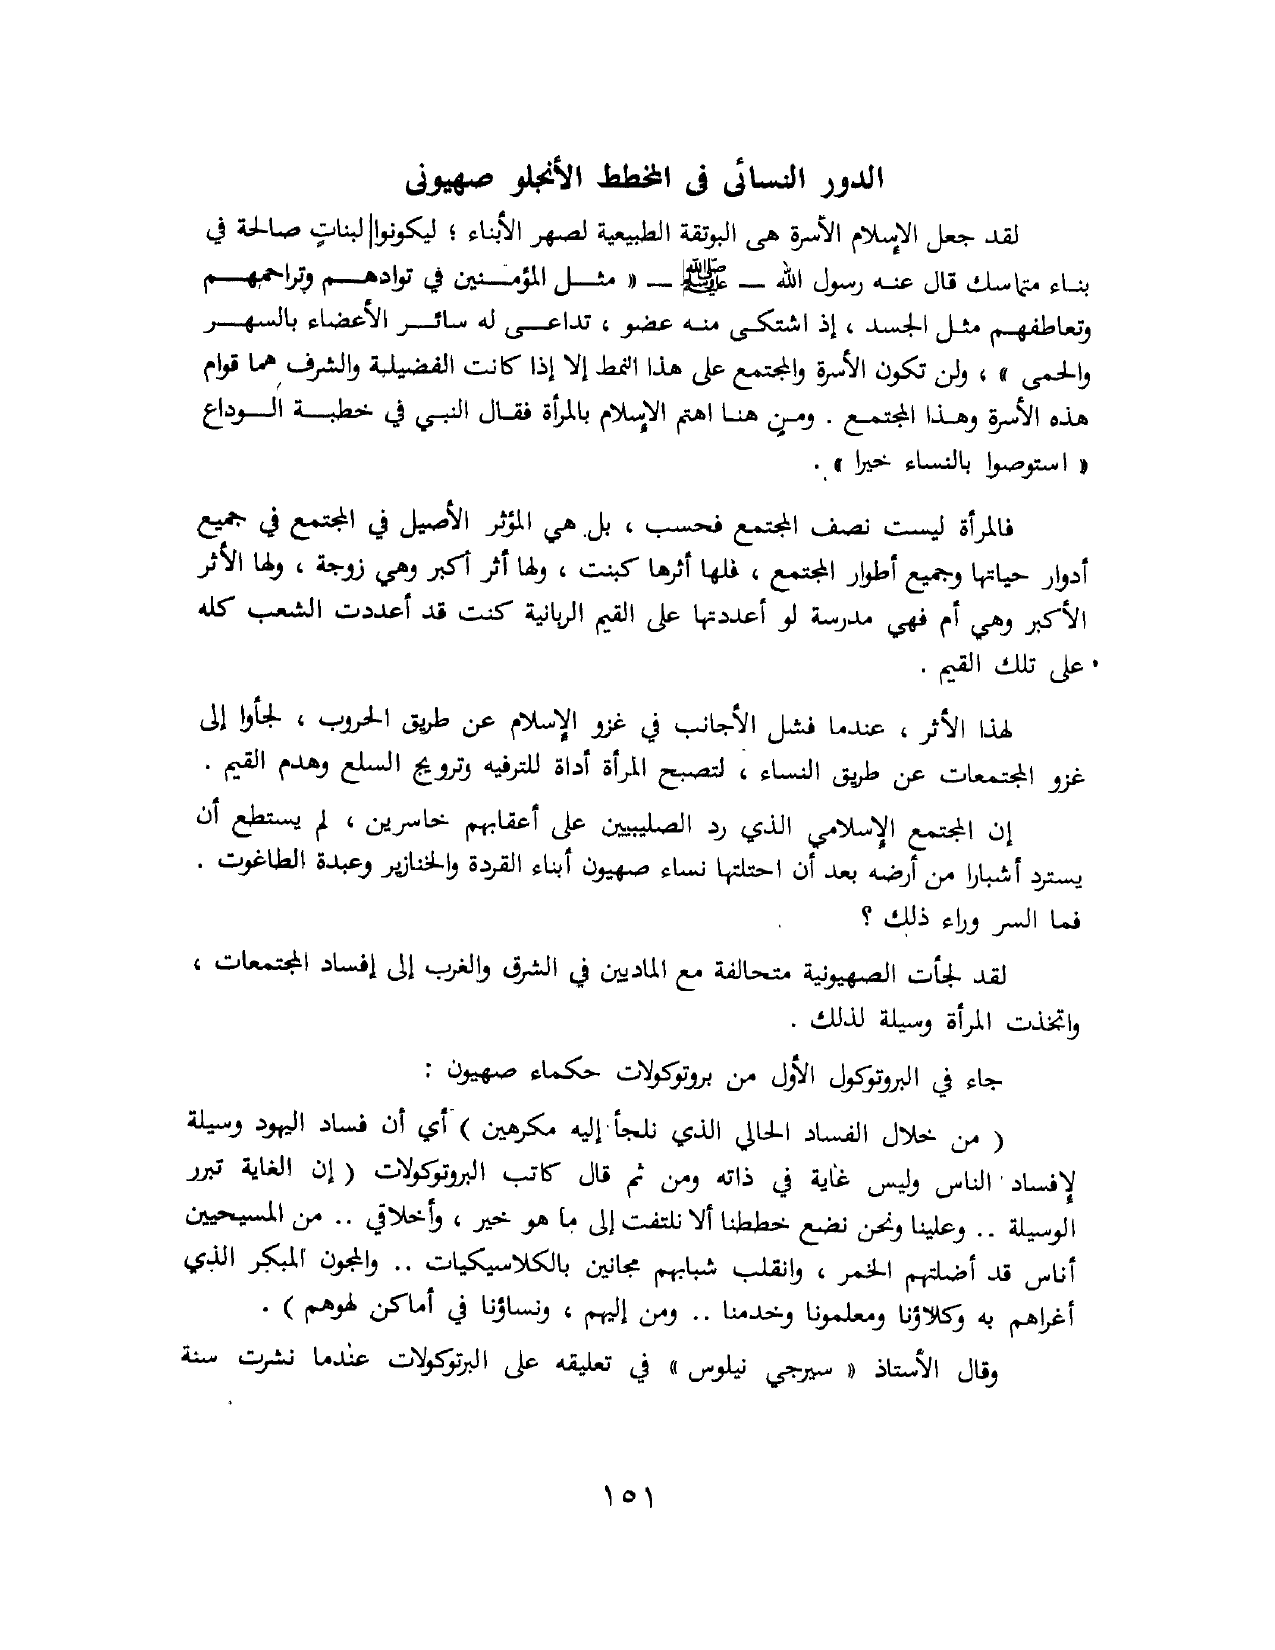 الدور النسائى فى المخطط الأنجلو صهيونى
لقد جعل الإسلام الأسرة هى البوتقة الطبيعية لصهر الأبناء ؛ ليكونوا لبناتٍ صالحة في
بناء متماسك قال عنه رسول الله — ﷺ — « مثل المؤمنين في توادهم وتراحمهم
وتعاطفهم مثل الجسد ، إذ اشتكى منه عضو ، تداعى له سائر الأعضاء بالسهر
والحمى » ، ولن تكون الأسرة والمجتمع على هذا النمط إلا إذا كانت الفضيلة والشرف هما قوام
هذه الأسرة وهذا المجتمع . ومن هنا اهتم الإسلام بالمرأة فقال النبي في خطبة الوداع
« استوصوا بالنساء خيرا » .
فالمرأة ليست نصف المجتمع فحسب ، بل هي المؤثر الأصيل في المجتمع في جميع
أدوار حياتها وجميع أطوار المجتمع ، فلها أثرها كبنت ، ولها أثر أكبر وهي زوجة ، ولها الأثر
الأكبر وهي أم فهي مدرسة لو أعددتها على القيم الربانية كنت قد أعددت الشعب كله
على تلك القيم .
لهذا الأثر ، عندما فشل الأجانب في غزو الإسلام عن طريق الحروب ، لجأوا إلى
غزو المجتمعات عن طريق النساء ، لتصبح المرأة أداة للترفيه وترويج السلع وهدم القيم .
إن المجتمع الإسلامي الذي رد الصليبيين على أعقابهم خاسرين ، لم يستطع أن
يسترد أشبارا من أرضه بعد أن احتلتها نساء صهيون أبناء القردة والخنازير وعبدة الطاغوت .
فما السر وراء ذلك ؟
لقد لجأت الصهيونية متحالفة مع الماديين في الشرق والغرب إلى إفساد المجتمعات ،
واتخذت المرأة وسيلة لذلك .
جاء في البروتوكول الأول من بروتوكولات حكماء صهيون :
( من خلال الفساد الحالي الذي نلجأ إليه مكرهين ) أي أن فساد اليهود وسيلة
لإفساد الناس وليس غاية في ذاته ومن ثم قال كاتب البروتوكولات ( إن الغاية تبرر
الوسيلة .. وعلينا ونحن نضع خططنا ألا نلتفت إلى ما هو خير ، وأخلاقي .. من المسيحيين
أناس قد أضلتهم الخمر ، وانقلب شبابهم مجانين بالكلاسيكيات .. والمجون المبكر الذي
أغراهم به وكلاؤنا ومعلمونا وخدمنا .. ومن إليهم ، ونساؤنا في أماكن لهوهم ) .
وقال الأستاذ « سيرجي نيلوس » في تعليقه على البرتوكولات عندما نشرت سنة
١٥١